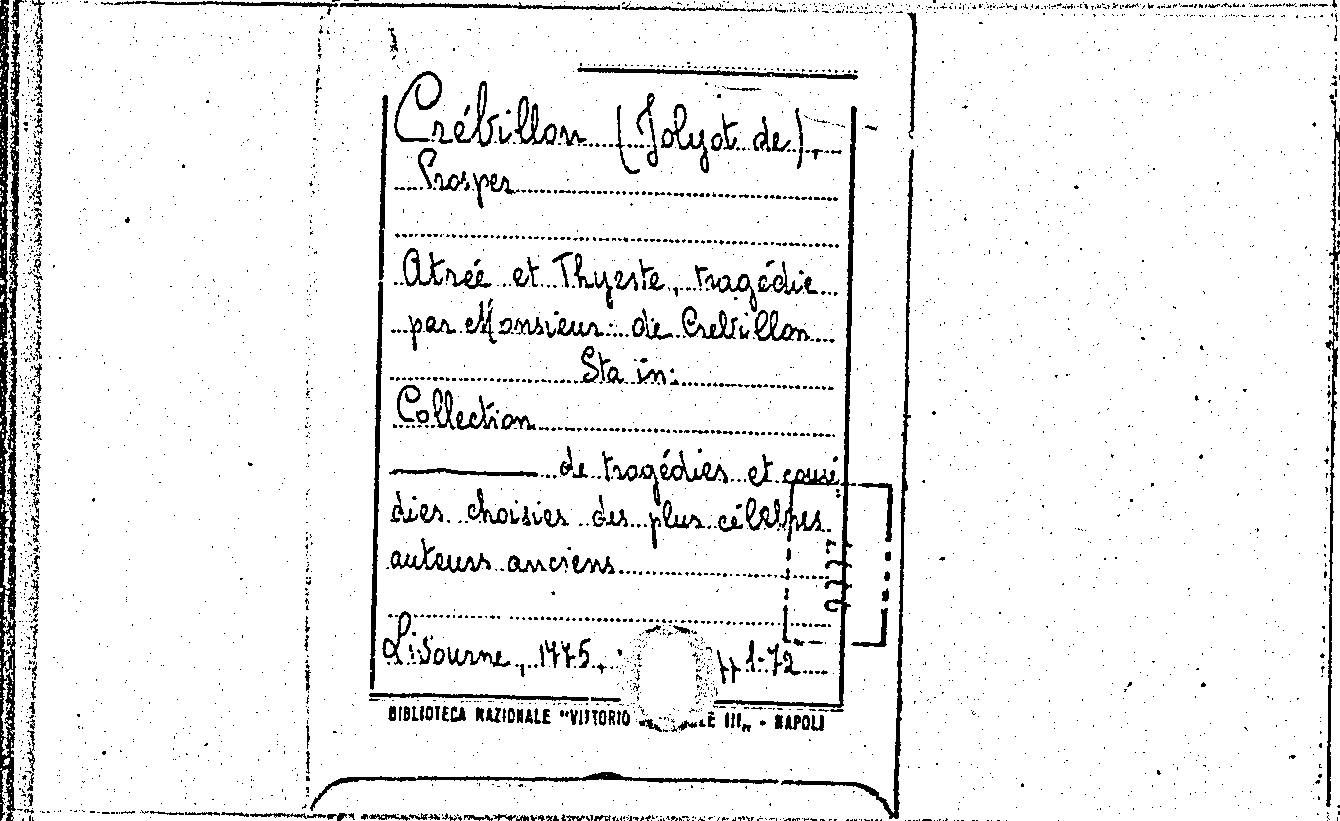 Crébillon (Jolyot de),
Prosper
Atrée et Thyeste, tragédie
par Monsieur de Crebillon
Sta in:
Collection
de tragédies et comé
dies choisies des plus célèbres
auteurs anciens
Livourne, 1775, pp 1-72
BIBLIOTECA NAZIONALE "VITTORIO III„ - NAPOLI